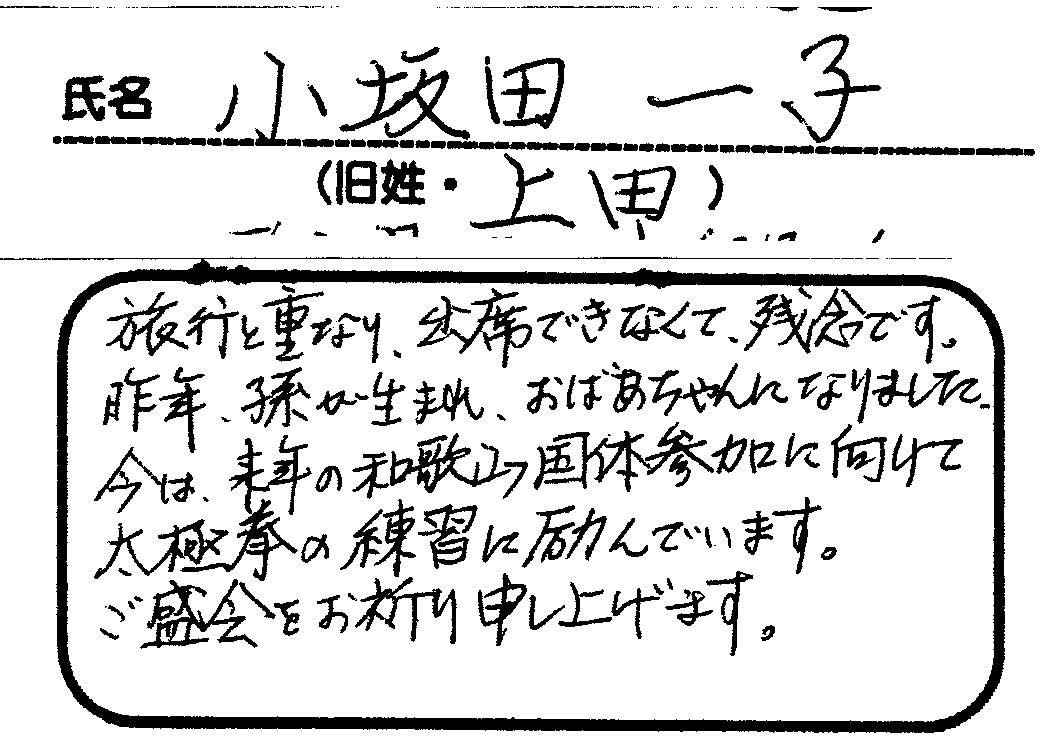 氏名 小坂田 一子
(旧姓・上田)
旅行と重なり、出席できなくて、残念です。
昨年、孫が生まれ、おばあちゃんになりました。
今は、来年の和歌山国体参加に向けて
太極拳の練習に励んでいます。
ご盛会をお祈り申し上げます。